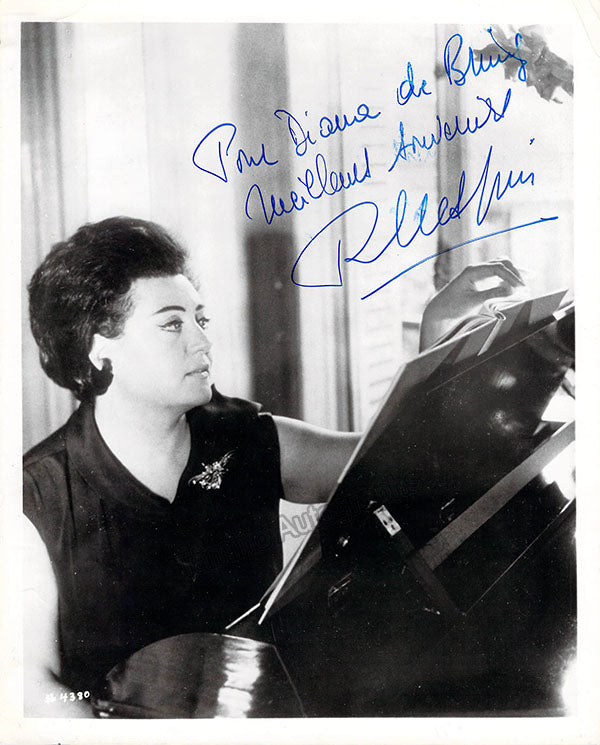 Pour Diana de
Meilleurs souvenirs
RCrespin
Auto
4380